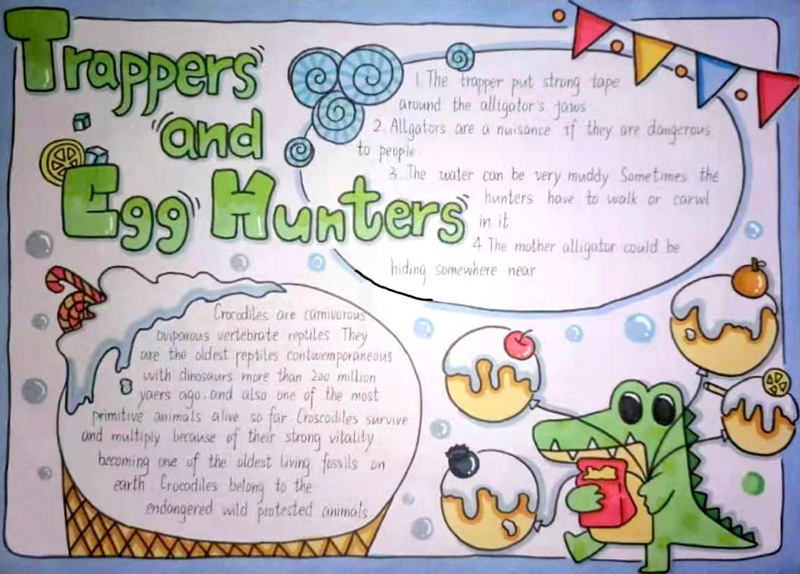 Trappers
and
Egg Hunters
1. The trapper put strong tape
around the alligator's jaws
2. Allgators are a nuisance if they are dangerous
to people
3. The water can be very muddy Sometimes the
hunters have to walk or carwl
in it
4. The mother alligator could be
hiding somewhere near
Crocodiles are carnivorous
oviparous vertebrate reptiles They
are the oldest reptiles contwemporaneous
with dinosaurs more than 200 million
yaers ago, and also one of the most
primitive animals alive so far Croscodiles survive
and multiply because of their strong vitality
becoming one of the oldest living fossils on
earth. Crocodiles belong to the
endangered wild protected animals.